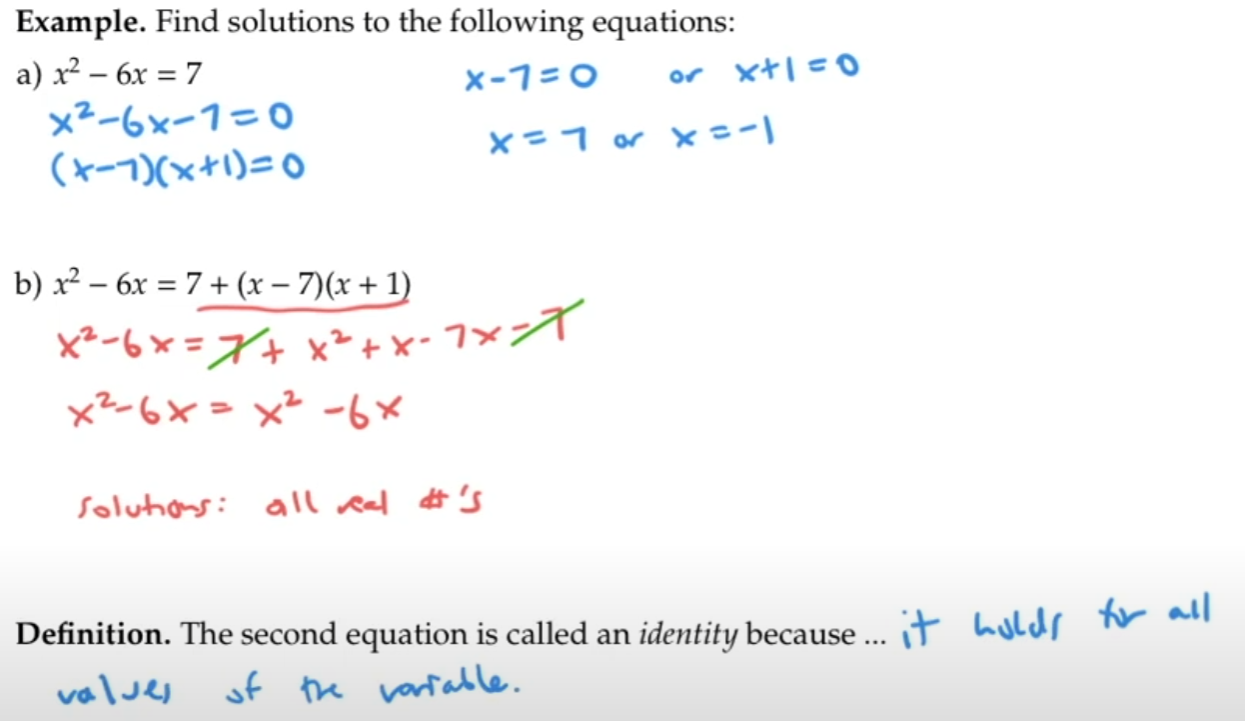 Example. Find solutions to the following equations:
a) x² – 6x = 7
x²-6x-7=0
(x-7)(x+1)=0
x-7=0 or x+1=0
x=7 or x=-1
b) x² – 6x = 7 + (x – 7)(x + 1)
x²-6x=7+ x²+x-7x-7
x²-6x= x² -6x
Solutions: all real #'s
Definition. The second equation is called an identity because ... it holds for all
values of the variable.